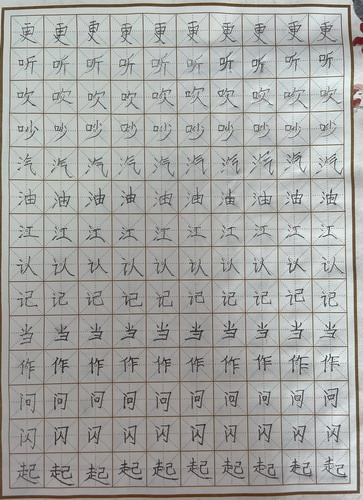 更更更更更更更更更更
听听听听听听听听听听
吹吹吹吹吹吹吹吹吹吹
吵吵吵吵吵吵吵吵吵吵
汽汽汽汽汽汽汽汽汽汽
油油油油油油油油油油
江江江江江江江江江江
认认认认认认认认认认
记记记记记记记记记记
当当当当当当当当当当
作作作作作作作作作作
问问问问问问问问问问
闪闪闪闪闪闪闪闪闪闪
起起起起起起起起起起